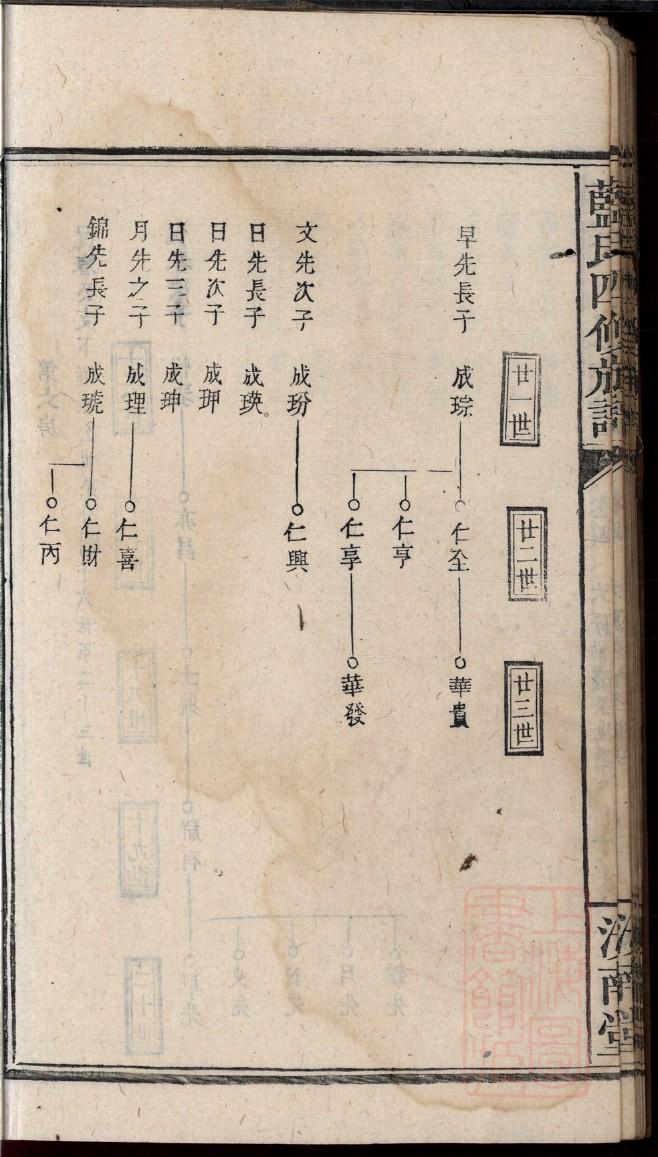 藍氏四修族譜
汝南堂
廿一世
廿二世
廿三世
早先長子 成琮 仁全 華貴
仁亨
仁享 華發
文先次子 成玢 仁興
日先長子 成瑛
日先次子 成玾
日先三子 成珅
月先之子 成理 仁喜
錦先長子 成琥 仁財
仁丙